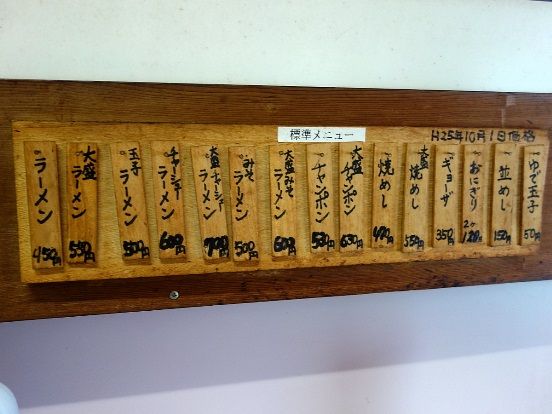 標準メニュー
H25年10月1日価格
ラーメン 450円
大盛ラーメン 550円
玉子ラーメン 500円
チャーシューラーメン 600円
大盛チャーシューラーメン 700円
みそラーメン 500円
大盛みそラーメン 600円
チャンポン 550円
大盛チャンポン 650円
焼めし 450円
大盛焼めし 550円
ギョーザ 350円
おにぎり 2ケ 120円
並めし 150円
ゆで玉子 50円